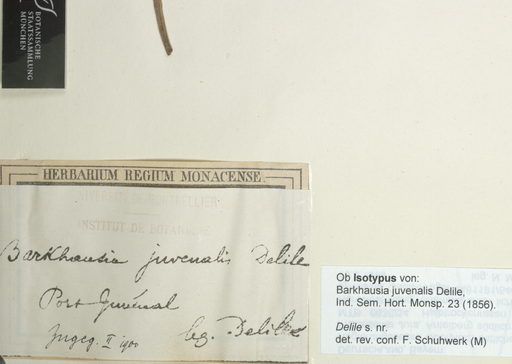 BOTANISCHE
STAATSSAMMLUNG
MÜNCHEN
HERBARIUM REGIUM MONACENSE.
INSTITUT DE BOTANIQUE
Barkhausia juvenalis Delile
Port Juvénal
II 1900 leg. Delile
Ob Isotypus von:
Barkhausia juvenalis Delile,
Ind. Sem. Hort. Monsp. 23 (1856).
Delile s. nr.
det. rev. conf. F. Schuhwerk (M)